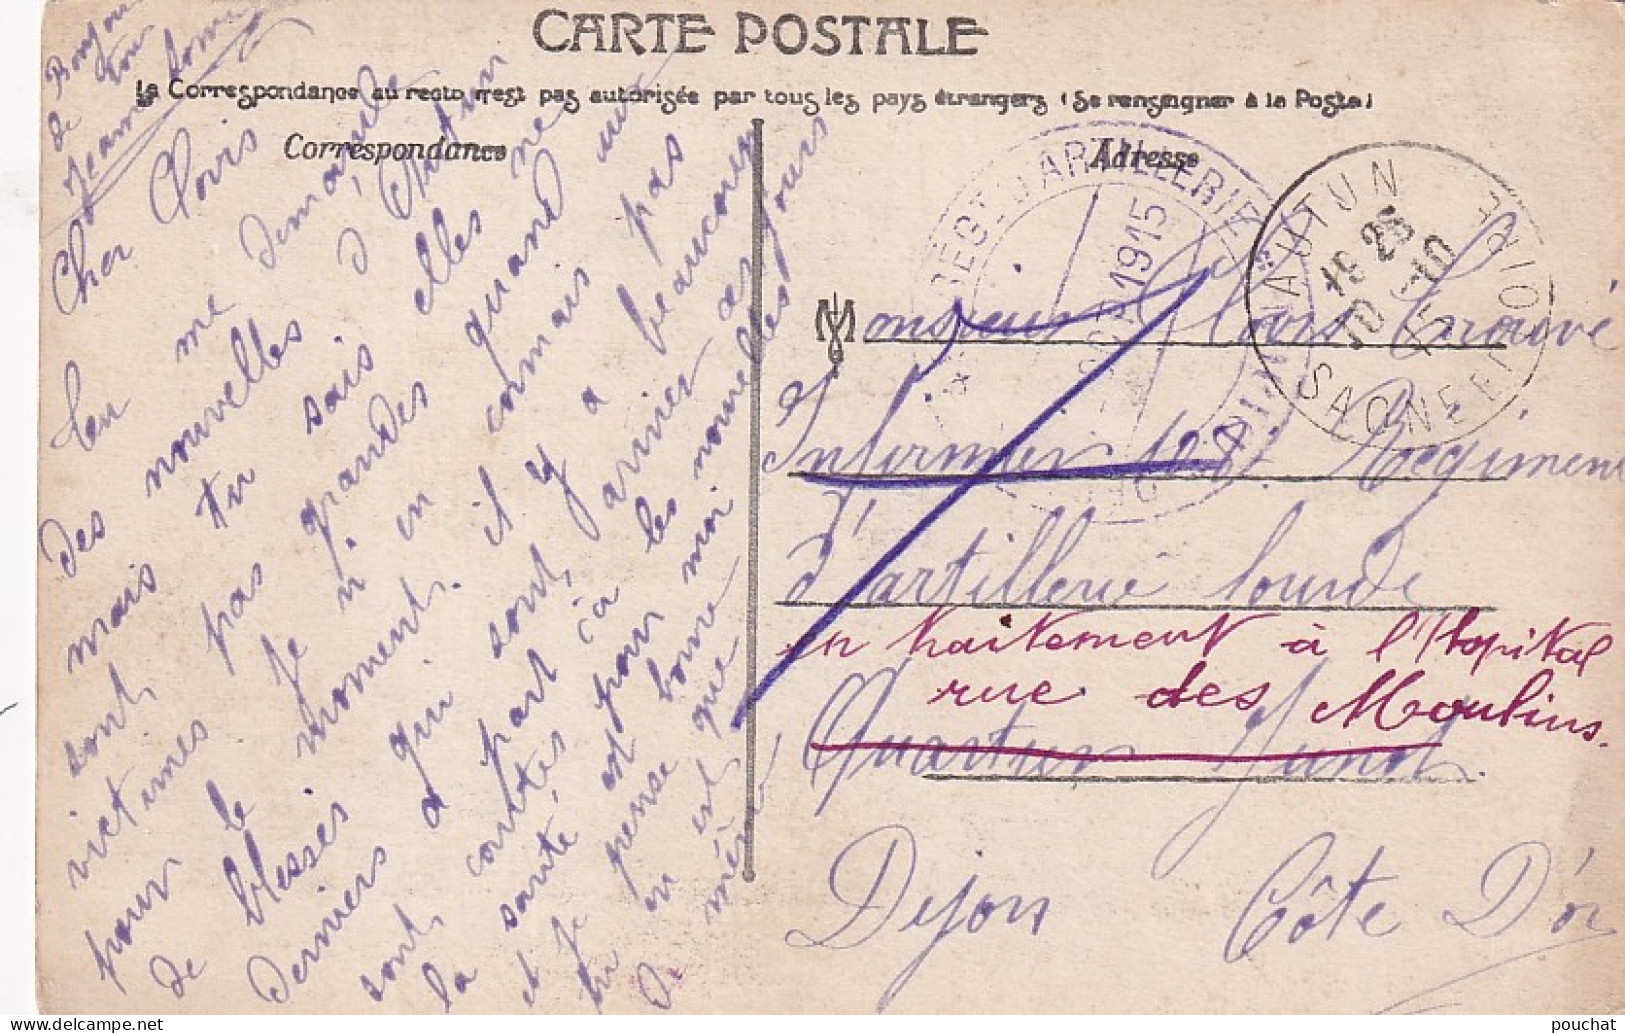 CARTE POSTALE
La Correspondance au recto n'est pas autorisée par tous les pays étrangers (Se renseigner à la Poste)
Correspondance
Adresse
Bonjour
de tous
de
Jeanne
Cher Clovis
tu me demande
des nouvelles d'Autun
mais tu sais elles ne
sont pas grandes quand aux
victimes je n'en connais pas
pour le moment. il y a beaucoup
de blessés qui sont arrivés ces jours
derniers à part ça les nouvelles
sont comptés pour moi
la santé est bonne
et je pense que
tu en est
de même
REGT D'ARTILLERIE
1915
AUTUN
19 25
10 -10
15
SAONE ET LOIRE
Monsieur Clovis
Infirmier 108 Régiment
d'artillerie lourde
en traitement à l'Hopital
rue des Moulins.
Quartier Junot
Dijon Côte D'or
pouchat